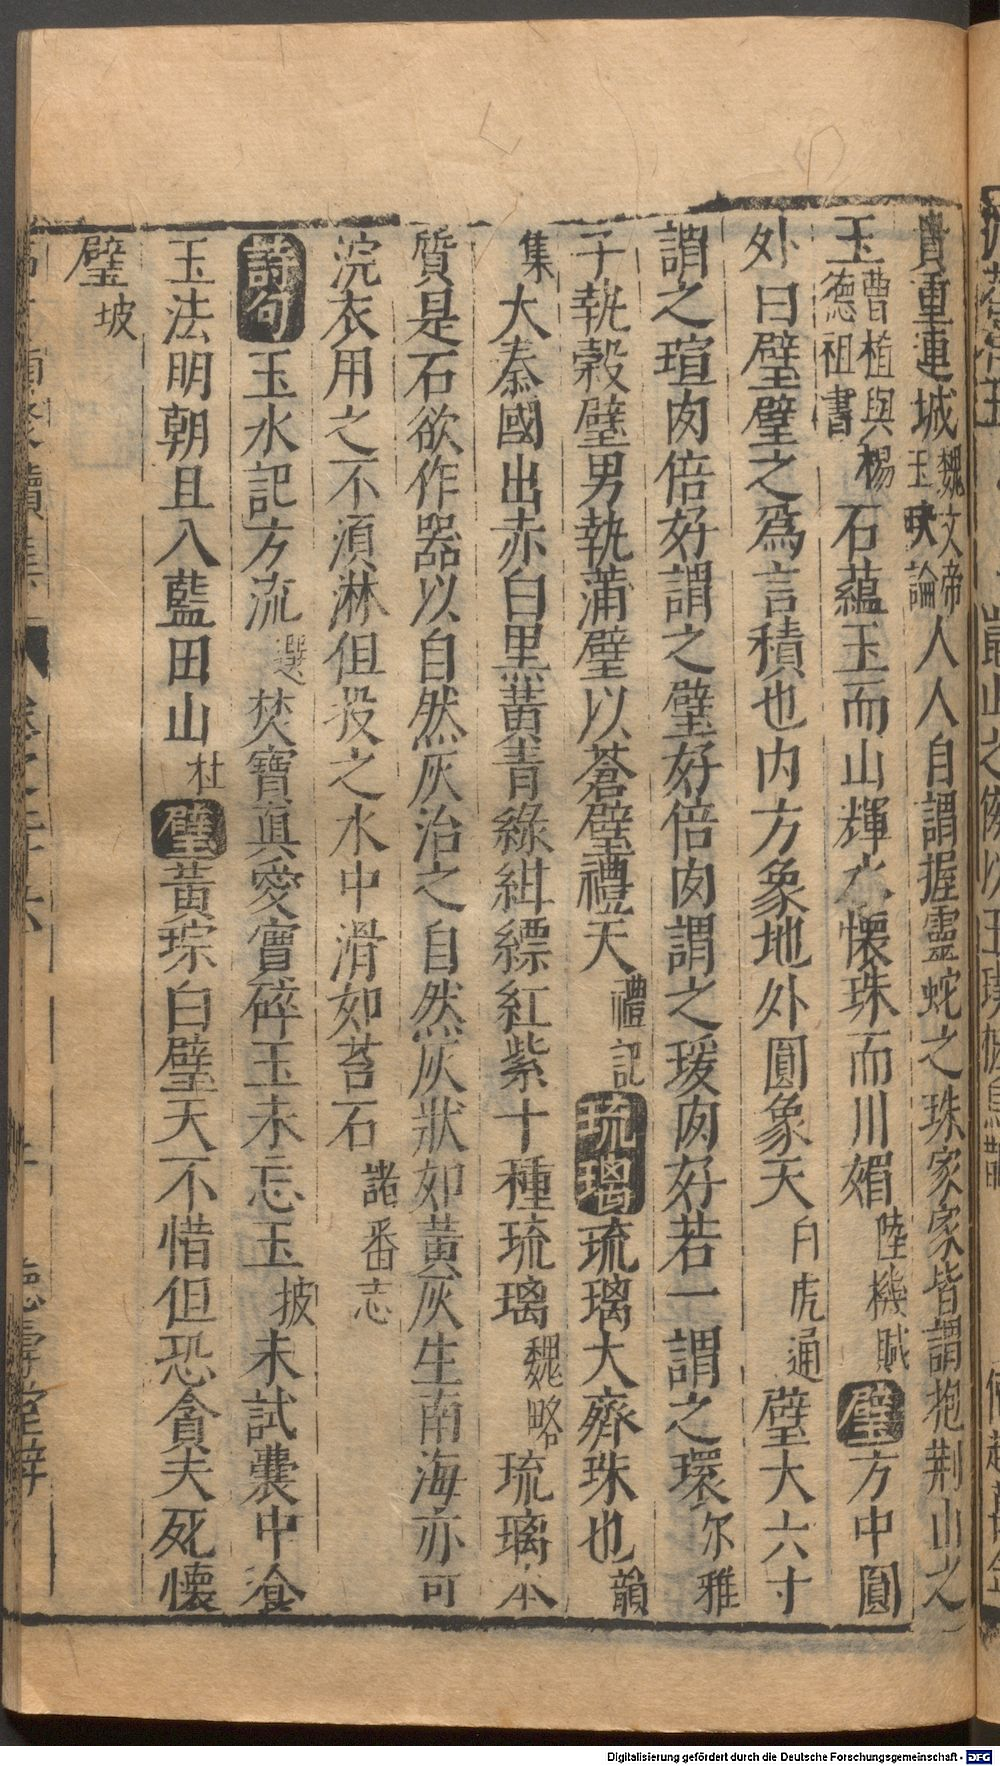 貴重連城魏文帝玉玦論人人自謂握靈蛇之珠家家皆謂抱荆山之
玉曹植與楊德祖書石蘊玉而山輝水懷珠而川媚陸機賦璧方中圓
外曰璧璧之爲言積也内方象地外圓象天白虎通璧大六寸
謂之瑄肉倍好謂之璧好倍肉謂之瑗肉好若一謂之環尔雅
子執榖璧男執蒲璧以蒼璧禮天禮記琉璃琉璃大齊珠也韻
集大秦國出赤白黑黃青綠紺縹紅紫十種琉璃魏略琉璃本
質是石欲作器以自然灰治之自然灰狀如黃灰生南海亦可
浣衣用之不須淋但投之水中滑如苔石諸番志
詩句玉水記方流選焚寶眞愛寶碎玉未忘玉坡未試囊中飡
玉法明朝且入藍田山杜璧黃琮白璧天不惜但恐貪夫死懷
璧坡
德壽堂梓
Digitalisierung gefördert durch die Deutsche Forschungsgemeinschaft - DFG